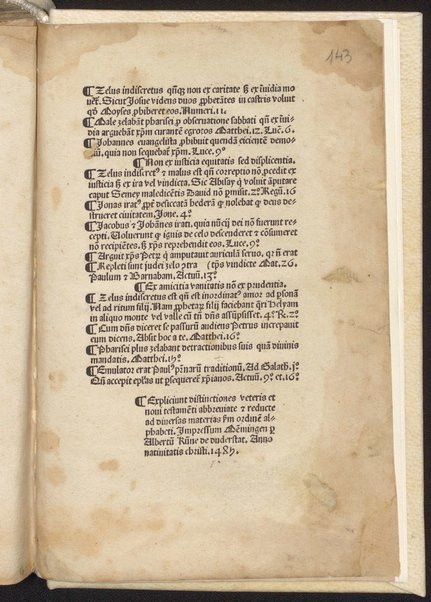 143
¶ Zelus indiscretus qn̄qꝫ non ex caritate sꝫ ex īuidia mo
uet̄. Sicut Josue videns duos ꝓphetātes in castris voluit
qd̓ Moyses ꝓhiberet eos. Numeri. 11.
¶ Male zelabāt pharisei ꝓ obseruatione sabbati qn̄ ex īui-
dia arguebāt xp̄m curantē egrotos Matthei. 12. Luc̄. 6.
¶ Johannes euangelista ꝓhibuit quendā eicientē demo-
quia non sequebat̄ xp̄m. Luce. 9°
¶ Non ex iusticia equitatis sed displicentia.
¶ Zelus indiscret⁹ & malus est qn̄ correptio nō ꝓcedit ex
iusticia sꝫ ex ira vel vindicta. Sic Abisay qn̄ voluit āputare
caput Semey maledicētis Dauid nō ꝑmisit. 2° Regū. 16
¶ Jonas irat⁹ ꝓpt̄ desiccatā hederā qꝛ nolebat qꝛ deus de-
strueret ciuitatem. Jone. 4°
¶ Jacobus & Johānes irati. quia nūcij dei nō fuerunt re-
cepti. Voluerunt qꝛ ignis de celo descenderet & cōsumeret
nō recipiētes. sꝫ xp̄s reprehendit eos. Luce. 9°
¶ Arguit xp̄s Petrꝝ qꝛ amputauit auriculā seruo. qꝛ n̄ erat
¶ Repleti sunt judei zelo ɔtra (tp̄s vindicte Mat. 26.
Paulum & Barnabam. Actuū. 13°
¶ Ex amicitia vanitatis nō ex prudentia.
¶ Zelus indiscretus est qn̄ est inordinat⁹ amor ad ꝑsonā
vel ad ritum filij. Nam ꝓphetaꝝ filij faciebant qr̄i Helyam
in aliquo monte vel valle eū tn̄ dn̄s assūpsisset. 4° R. 2°
¶ Cum dn̄s diceret se passurū audiens Petrus increpauit
eum dicens. Absit hoc a te. Matthei. 16°
¶ Pharisei plus zelabant detractionibus suis quā diuinis
mandatis. Matthei. 15°
¶ Emulator erat Paul⁹ pr̄narū traditionū. Ad Galath. j°
Cn̄ accepit ep̄las ut ꝑsequeret̄ xp̄ianos. Actuū. 9° et. 16°
¶ Expliciunt distinctiones veteris et
noui testamēti abbreuiate & reducte
ad diuersas materias ẜm ordinē al-
phabeti. Impressum Mēmingen ꝑ
Albertū Kūne de duderstat. Anno
natiuitatis christi. 1485.